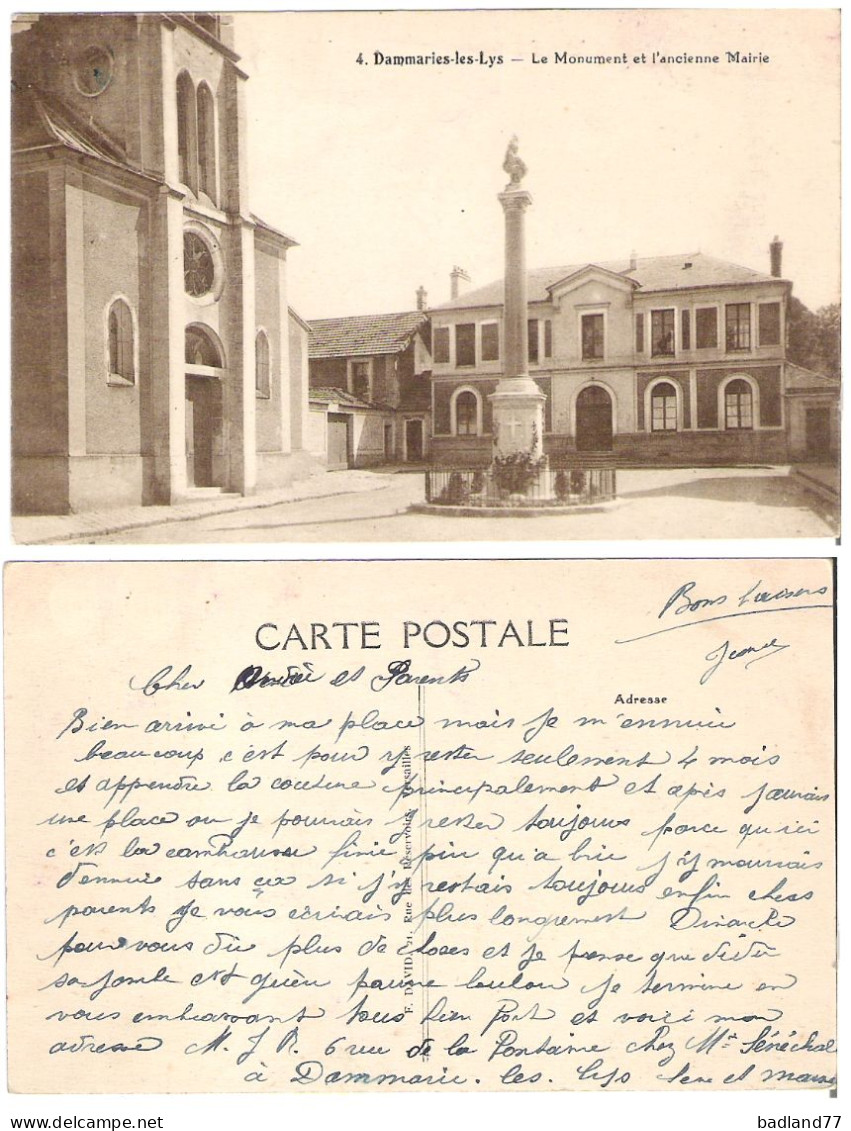 4. Dammaries-les-Lys — Le Monument et l'ancienne Mairie
CARTE POSTALE
Bons baisers
Adresse
Cher André et Parents
Bien arrivé à ma place mais je m'ennuie
beaucoup c'est pour y rester seulement 4 mois
et apprendre la couture principalement et après j'aurais
une place ou je pourrais y rester toujours parce qu'ici
c'est la qu'a y mourrais
d'ennuie sans ça si j'y restais toujours enfin chers
parents je vous écrirais plus longuement Dimanche
pour vous dire plus de choses et je pense que
est Loulou je termine en
vous embrassant tous bien fort et voici mon
adresse M. J R. 6 rue de la Fontaine chez Mr Sénéchal
à Dammarie. les. Lys Seine et Marne
F. DAVID, 21, Rue des Réservoirs, Versailles
badland77
delcampe.net